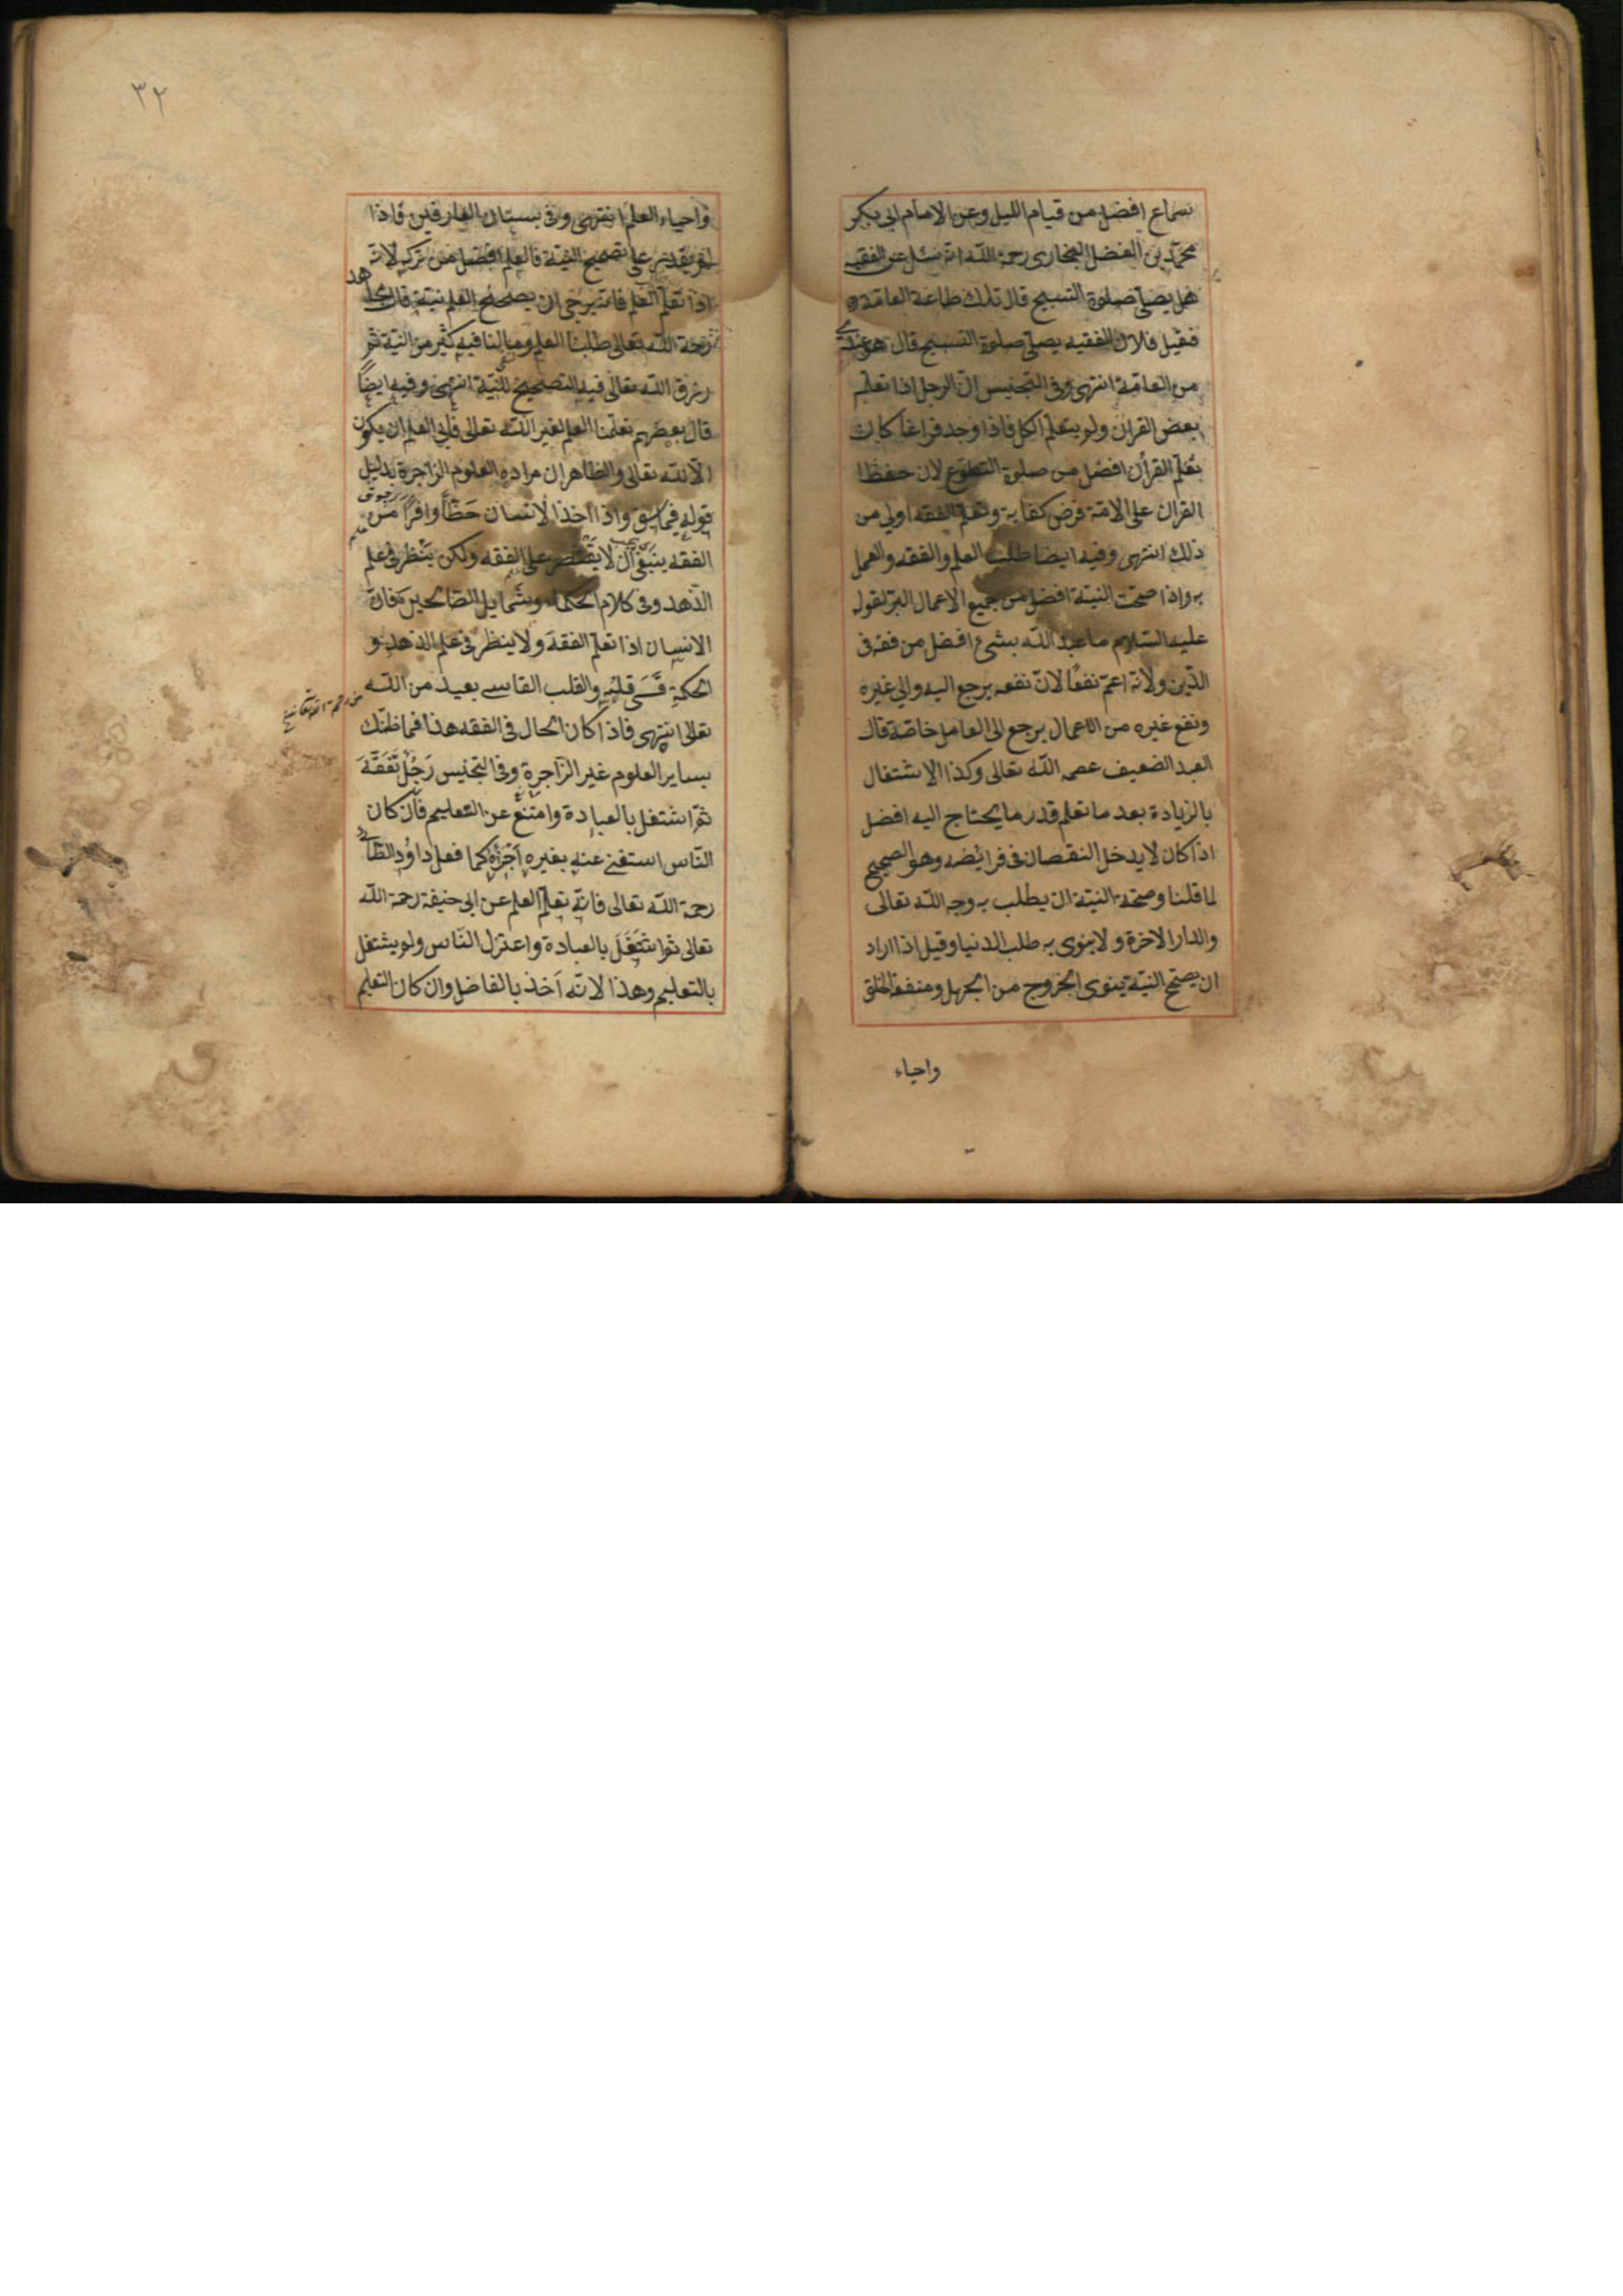 سماع افضل من قيام الليل وعن الامام ابي بكر
محمد بن الفضل البخارى رحمه الله انه سئل عن الفقيه
هل يصلى صلوة التسبيح قال تلك طاعة العامة
فقيل فلان الفقيه يصلى صلوة التسبيح قال هو عندى
من العامة انتهى وفى التجنيس ان الرجل اذا تعلم
بعض القران ولم يتعلم الكل فاذا وجد فراغا كان
تعلم القران افضل من صلوة التطوع لان حفظ
القران على الامة فرض كفاية وتعلم الفقه اولى من
ذلك انتهى وفيه ايضا طلب العلم والفقه والعمل
به واذا صحت النية افضل من جميع الاعمال البر لقوله
عليه السلام ما عبد الله بشئ افضل من فقه فى
الدين ولانه اعم نفعًا لان نفعه يرجع اليه والى غيره
ونفع غيره من الاعمال يرجع الى العامل خاصة قال
العبد الضعيف عصمه الله تعالى وكذا الاشتغال
بالزيادة بعد ما تعلم قدر ما يحتاج اليه افضل
اذا كان لا يدخل النقصان فى فرائضه وهو الصحيح
لما قلنا وصحة النية ان يطلب به وجه الله تعالى
والدار الاخرة ولا ينوى به طلب الدنيا وقيل اذا اراد
ان يصحح النية ينوى الخروج من الجهل ومنفعة الخلق
واحياء
٣٢
واحياء العلم انتهى وفى بستان العارفين فاذا
لم يقدر على تصحيح النية فالعلم افضل من تركه لانه
اذا تعلم العلم فانه يرجى ان يصحح العلم نيته قال مجاهد
رحمة الله تعالى طلبنا العلم وما لنا فيه كثير من النية ثم
رزق الله تعالى فيه التصحيح للنية انتهى وفيه ايضاً
قال بعضهم تعلمنا العلم لغير الله تعالى فابى العلم ان يكون
الا لله تعالى والظاهر ان مراده العلوم الزاجرة بدليل
قوله فيما سبق واذا اخذ الانسان حظاً وافراً من
الفقه ينبغى ان لا يقتصر على الفقه ولكن ينظر فى علم
الزهد وفى كلام الحكماء وشمايل الصالحين فان
الانسان اذا تعلم الفقه ولا ينظر فى علم الزهد و
الحكمة قسى قلبه والقلب القاسى بعيد من الله
تعالى انتهى فاذا كان الحال فى الفقه هذا فما ظنك
بساير العلوم غير الزاجرة وفى التجنيس رَجُل تَفَقَّهَ
ثم اشتغل بالعبادة وامتنع عن التعليم فان كان
الناس استغنى عنه بغيره اجزأه كما فعل داود الطائى
رحمة الله تعالى فانه تعلم العلم عن ابى حنيفة رحمة الله
تعالى ثم اشتَغَلَ بالعبادة واعتزل الناس ولم يشتغل
بالتعليم وهذا لانه اخذ بالفاضل وان كان التعليم